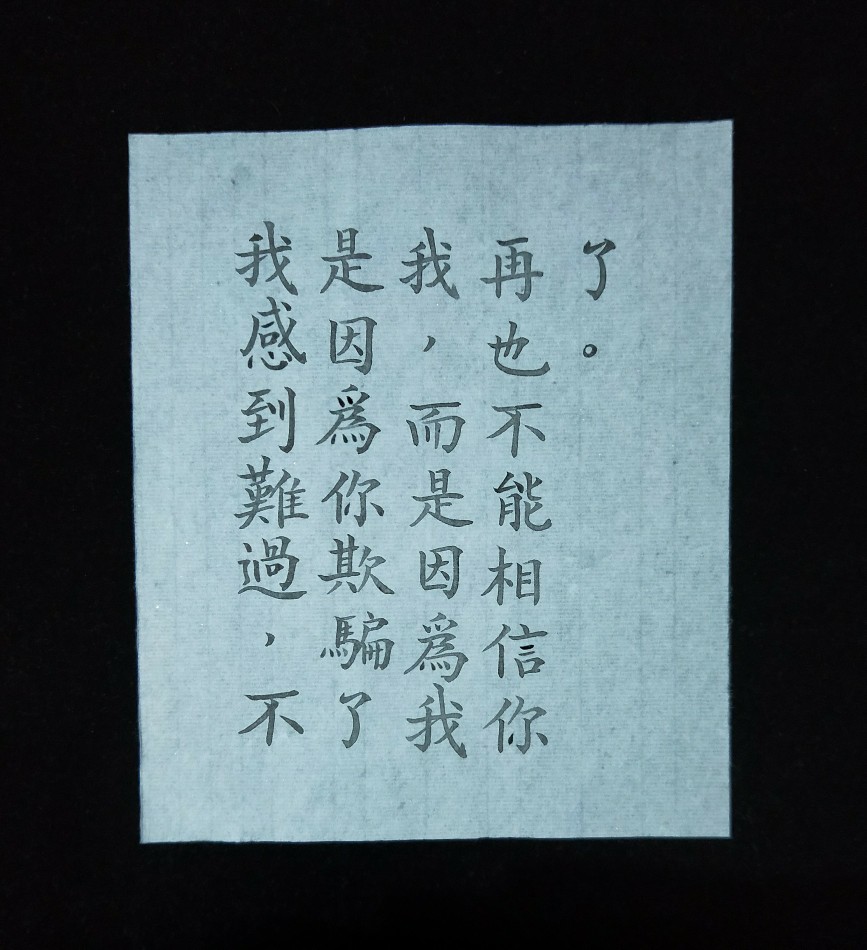 我感到難過，不
是因爲你欺騙了
我，而是因爲我
再也不能相信你
了。